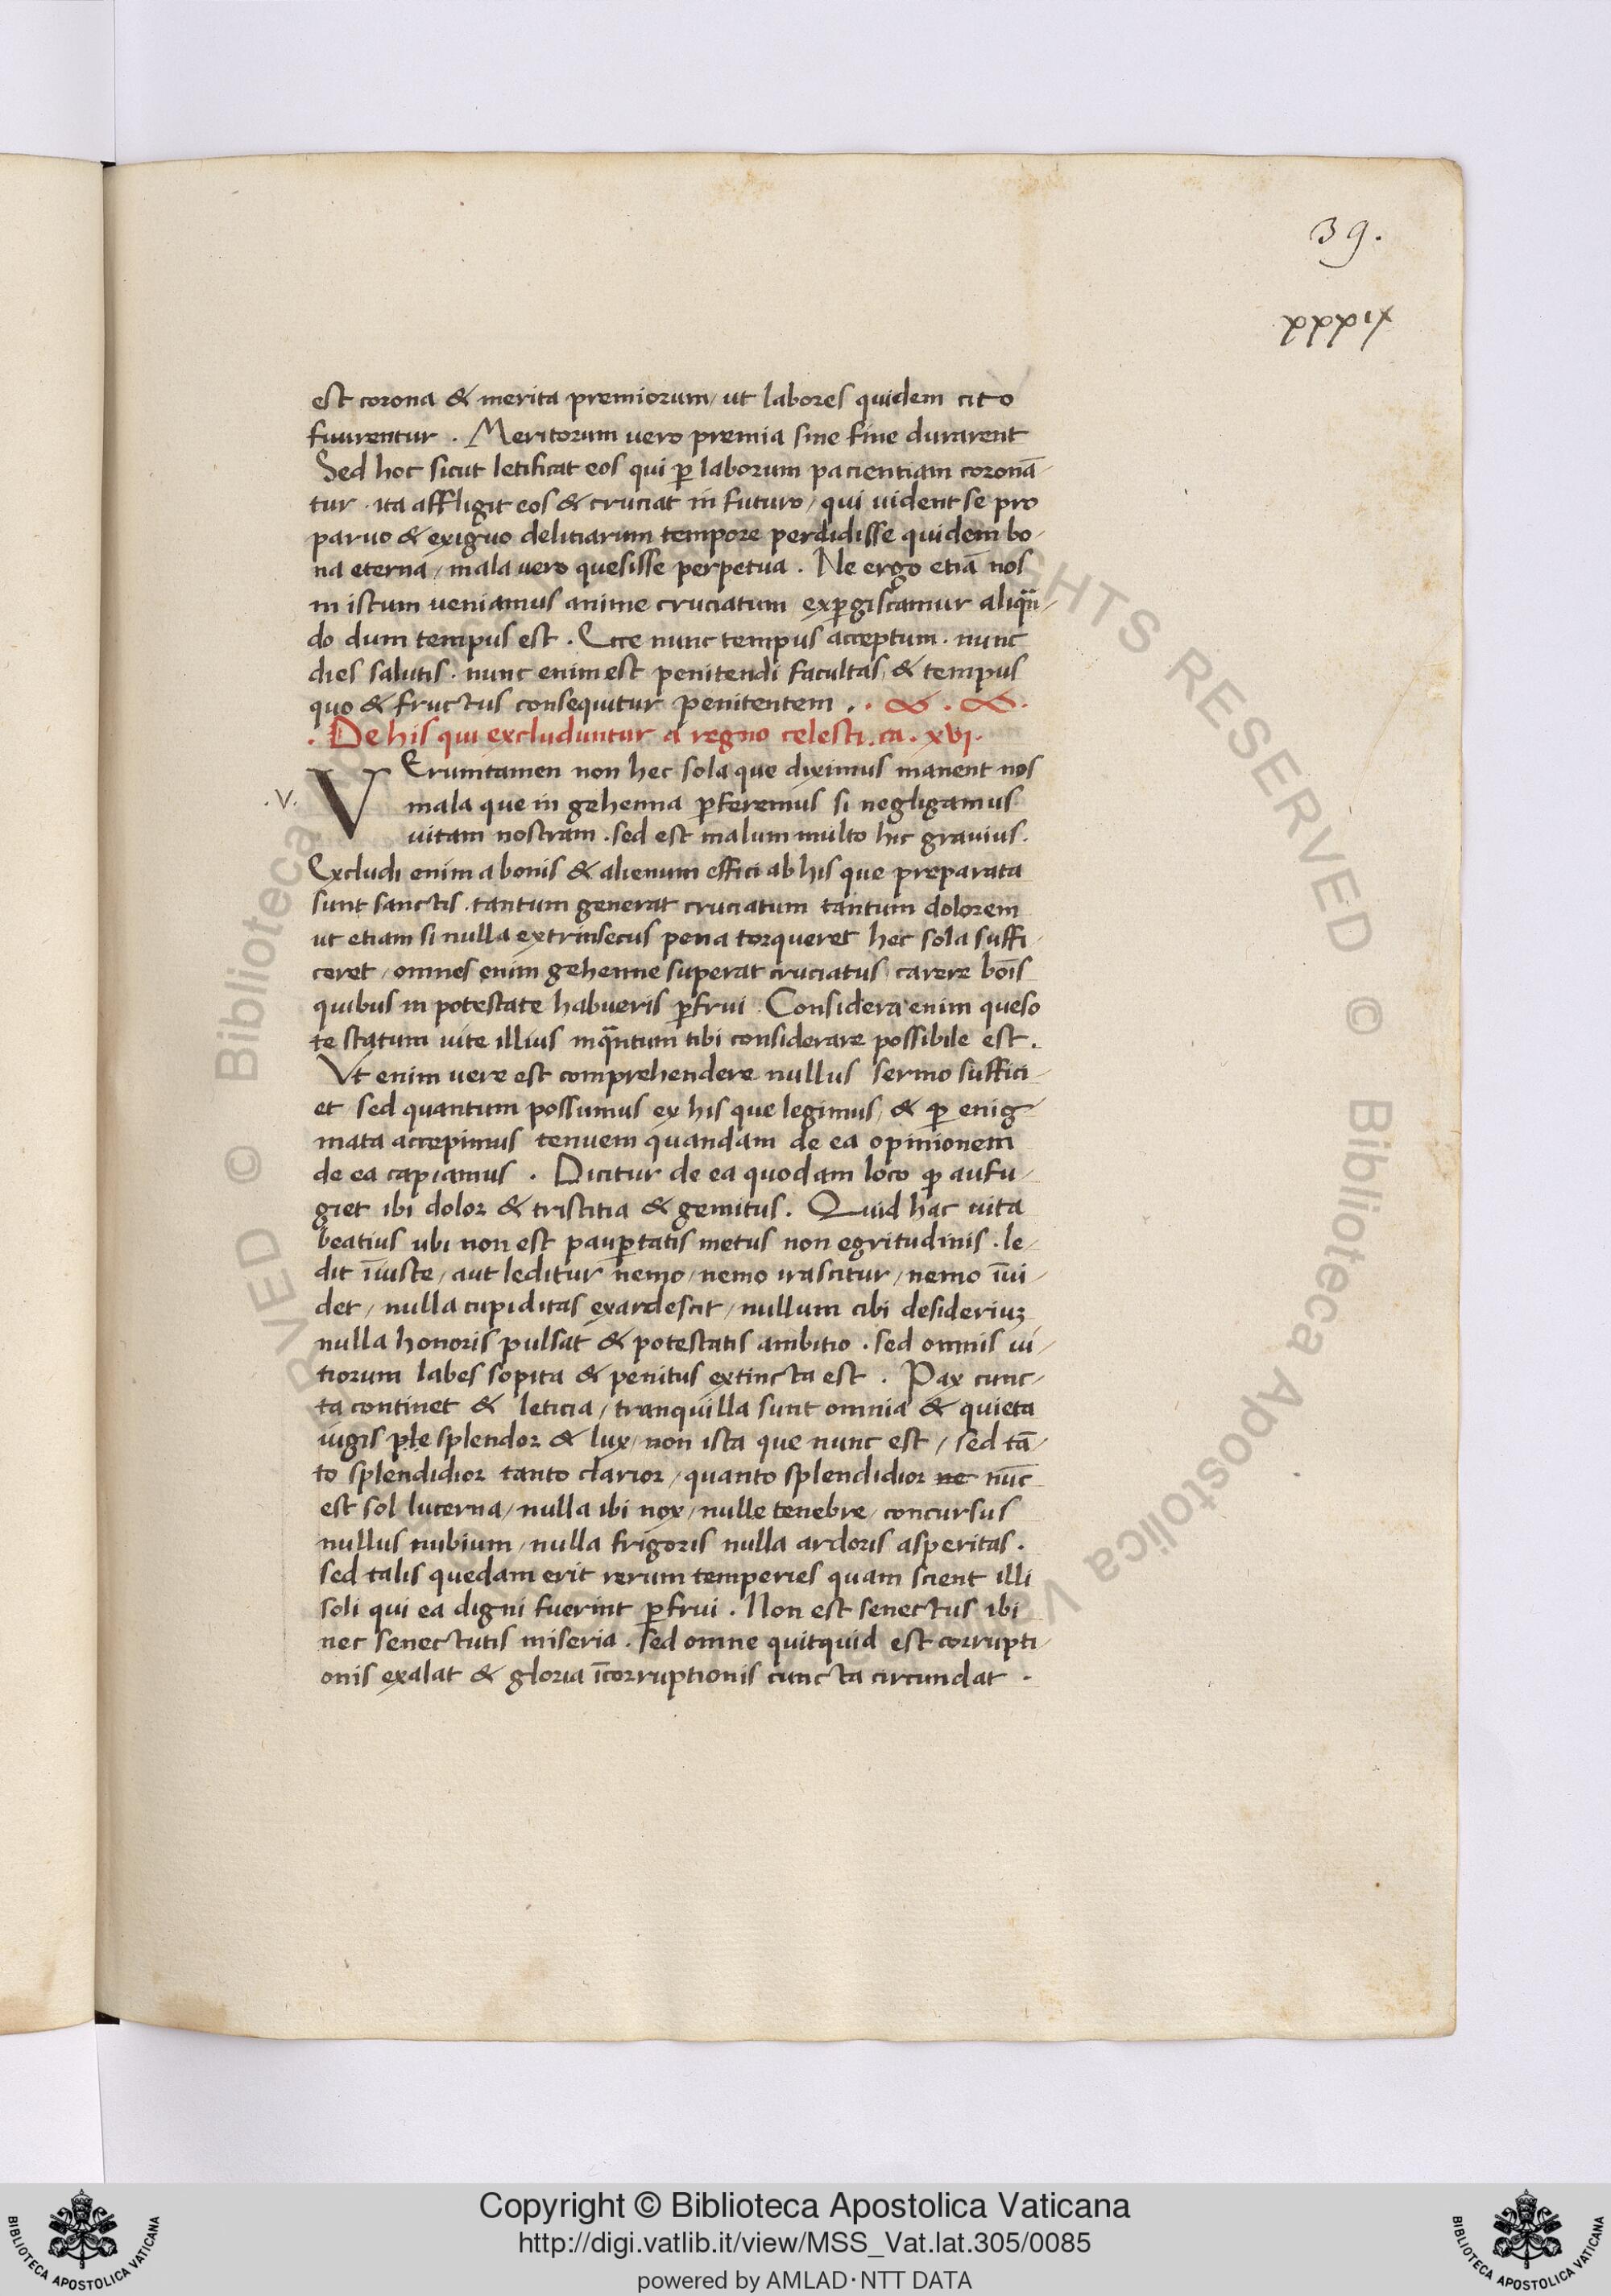 39.
xxxix
est corona & merita premiorum / ut labores quidem cito
finirentur . Meritorum uero premia sine fine durarent
Sed hoc sicut letificat eos qui ꝑ laborum pacientiam coronā-
tur . ita affligit eos & cruciat in futuro / qui uident se pro
paruo & exiguo delitiarum tempore perdidisse quidem bo-
na eterna / mala uero quesisse perpetua . Ne ergo etiā nos
in istum ueniamus anime cruciatum exꝑgiscamur aliqñ-
do dum tempus est . Ecce nunc tempus acceptum . nunc
dies salutis . nunc enim est penitendi facultas / & tempus
quo & fructus consequitur penitentem .
. De his qui excluduntur a regno celesti . ca . xvi .
.v.
VErumtamen non hec sola que diximus manent nos
mala que in gehenna ꝑferemus si negligamus
uitam nostram . sed est malum multo hic grauius .
Excludi enim a bonis & alienum effici ab his que preparata
sunt sanctis . tantum generat cruciatum tantum dolorem
ut etiam si nulla extrinsecus pena torqueret hec sola suffi-
ceret / omnes enim gehenne superat cruciatus carere bōis
quibus in potestate habueris ꝑfrui . Considera enim queso
te statum uite illius inqāntum tibi considerare possibile est .
Vt enim uere est comprehendere nullus sermo suffici-
et sed quantum possumus ex his que legimus / & ꝑ enig-
mata accepimus tenuem quandam de ea opinionem
de ea capiamus . Dicitur de ea quodam loco ꝙ aufu-
giet ibi dolor & tristitia & gemitus . Quid hac uita
beatius ubi non est pauꝑtatis metus non egritudinis . le-
dit īiuste / aut leditur nemo / nemo irascitur / nemo īui-
det / nulla cupiditas exardescit / nullum cibi desideriuꝫ
nulla honoris pulsat & potestatis ambitio . sed omnis ui-
tiorum labes sopita & penitus extincta est . Pax cunc-
ta continet & leticia / tranquilla sunt omnia & quieta
iugis ple splendor & lux / non ista que nunc est / sed tā-
to splendidior tanto clarior / quanto splendidior ne nūc
est sol lucerna / nulla ibi nox / nulle tenebre / concursus
nullus nubium / nulla frigoris nulla ardoris asperitas .
sed talis quedam erit rerum temperies quam scient illi
soli qui ea digni fuerint ꝑfrui . Non est senectus ibi
nec senectutis miseria . sed omne quitquid est corrupti-
onis exalat & gloria īcorruptionis cuncta circundat .
Copyright © Biblioteca Apostolica Vaticana
http://digi.vatlib.it/view/MSS_Vat.lat.305/0085
powered by AMLAD·NTT DATA
BIBLIOTECA APOSTOLICA VATICANA
BIBLIOTECA APOSTOLICA VATICANA